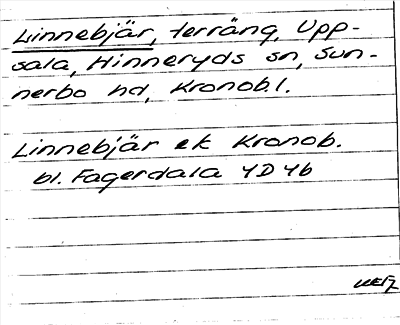 Linnebjär, terräng, Upp-
sala, Hinneryds sn, Sun-
nerbo hd, Kronob.l.
Linnebjär ek Kronob.
bl. Fagerdala 4D4b